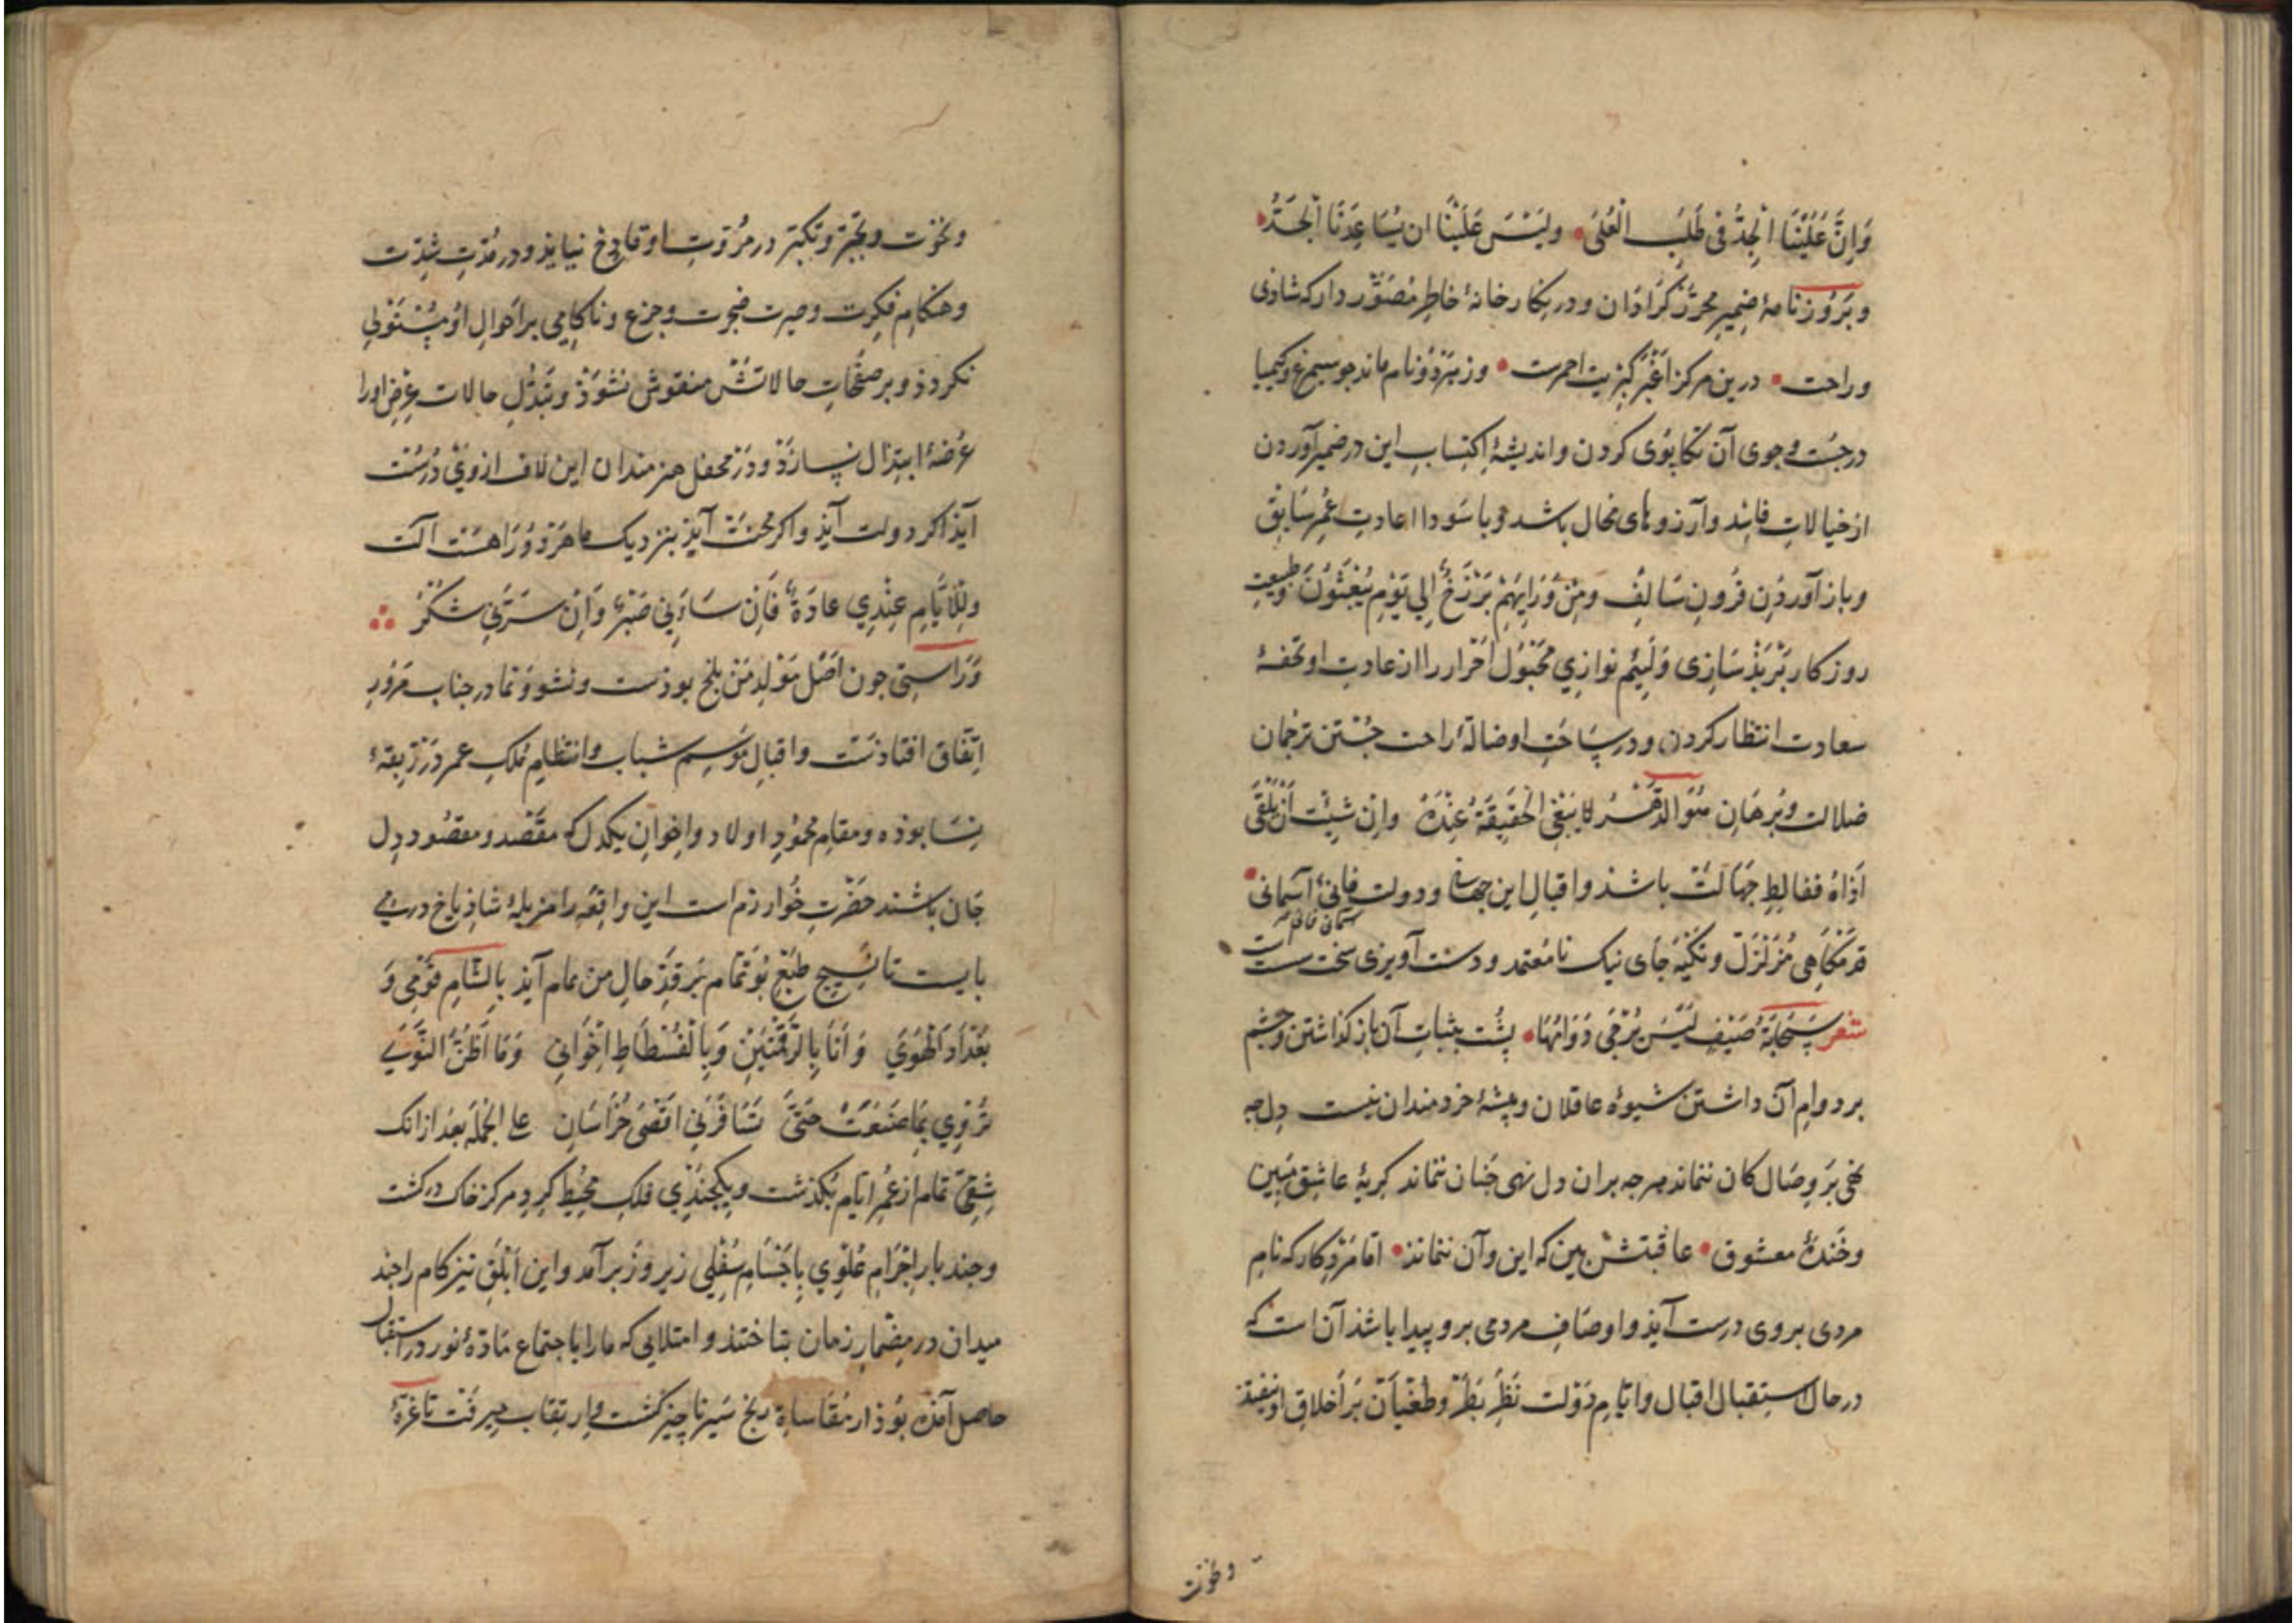 وَاِنَّ عَلَیْنَا الْجِدَّ فی طَلَبِ الْعُلَی ولَیْسَ عَلَیْنَا ان یُسَاعِدَنَا الْجَدُّ
وبَرُوزنامهٔ ضمیر محرّر کرادان ودر نکارخانهٔ خاطر مُصَوَّر دار که شاذی
وراحت درین مرکز اَغْبَر کبریت احمرست وزین هَرْدُو نام ماند جو سیمرغ وکیمیا
درجست وجوی آن تکاپوی کردن واندیشهٔ اکتسابِ این در ضمیر آوردن
ازخیالاتِ فاسد وآرزوهای محال باشد وباسودا اعادتِ عُمرِ سَابِق
وباز آوردنِ قُرونِ سَالِف ومِنْ وَرَایِهِمْ بَرْزَخٌ اِلی یَوْمِ یُبْعَثُونَ وطبیعتِ
روزکار بَرْ بَدْسَازی وَلَئیم نوازی مَجْبُول اَحْرار را از عادتِ او تحفهٔ
سعادت انتظار کردن ودر سَاحَتِ او ضالّهٔ راحت جُسْتن ترجمانِ
ضلالت وبُرهَانِ هُوَ الدَّهْرُ لا یَبْغِی الْحَقِیقَةَ عِنْدَهُ وانْ شِیْتَ اَنْ تَلْقَی
اَذَاهُ فغالِطِ جَهَالَتْ باشذ واقبالِ این جهانی ودولت فانی آسمانی
قدمگاهی مُزَلْزَل وتکیه جای نیک نامُعتمد ودست آویزی سخت سست
شعر سَحَابَةُ صَیْفٍ لَیْسَ یُرْجَی دَوَامُهَا پُشت بثباتِ آن باز کذاشتن وچشم
بردوامِ آن داشتن شیوهٔ عاقلان وپیشهٔ خردمندان نیست دل چه
نهی بَر وصال کان نماند هرجه بران دل نهی جنان نماند کریهٔ عاشق مَبین
وخَندهٔ معشوق عاقبتش بین که این وآن نماند امّا مَرْدِ کار که نامِ
مردی بروی درست آیذ واوصَافِ مردمی برو پیدا باشذ آن است که
درحال استقبال اقبال وایّامِ دَوْلت نَظَرِ بَطَر وطُغْیَان بَر اَخلاقِ او نیفتذ
ونخوت وتجبّر وتکبّر درمُرُوّتِ او قادح نیایذ ودرمُدّتِ شِدّت
وهنکامِ فکرت وحیرت ضجرت وجزع وناکامی براحوالِ او مُسْتَولی
نکردذ وبر صفَحاتِ حالاتش منقوش نشوَذ وتَبَدُّلِ حالات عِرْض اورا
عُرْضهٔ ابتذال نسازَذ ودَر محفلِ هنرمندان این لاف ازوی دُرُست
آیذ اکر دولت آیذ واکر محنت آیذ بنزدیک ما هَرْدُو رَا هست آلت
وللاَیَّامِ عِنْدِی عادَةٌ فَاِنْ سَاءَنِی صَبْرٌ وَاِنْ سَرَّنِی شُکْرُ
وَرَاستی جون اَصْل مَوْلِدِ مَن بلخ بوذست ونشو ونما در جنابِ مَرْو
اتّفاق افتاذَست واقبالِ مَوْسِم شباب وانتظامِ مُلکِ عمر دَر رِبقهٔ
نِسَا بوذه ومقامِ محمُودِ اولاد واِخوان یکدل که مقْصد ومقصُود دِل
جَان باشند حَضْرتِ خُوارزم است این واقعه را مزبلهٔ شاذیاخ درمی
بایست تا نسیج طبعِ بو تمام بَر قدِّ حالِ من تمام آیذ بِالشَّامِ قَوْمِی وَ
بَغْدَادُ الْهَوَی وَاَنَا بِالرَّقَمَتَیْنِ وَبِالْفُسْطَاطِ اِخْوَانِی وَمَا اَظُنُّ النَّوَی
تَرْوِی بِمَا صَنَعَتْ حَتَّی تُسَافِرَنِی اَقْصَی خُرَاسَانِ علی الجُمْلَه بَعْد ازانک
شِقّی تمام از عُمرِ ایّام بُکذشت وبِیکجنْدِی فلکِ مُحِیط کردِ مرکز خاک درکشت
وجند بار اجْرامِ عُلْوِی بِاَجْسَامِ سُفْلِی زیر وزَبَر آمد واین اَبْلَقِ تیزکام را جند
میدان درمِضْمارِ زمان بتاختند وامتلایی که مارا باجتماعِ مَادّهٔ نور دراستقبال
حاصل آمده بُوذ از مُقَاساةِ رنج سَیر ناچیز کشت واِرتقاب میرفت تا غُرّهٔ
ونخوت